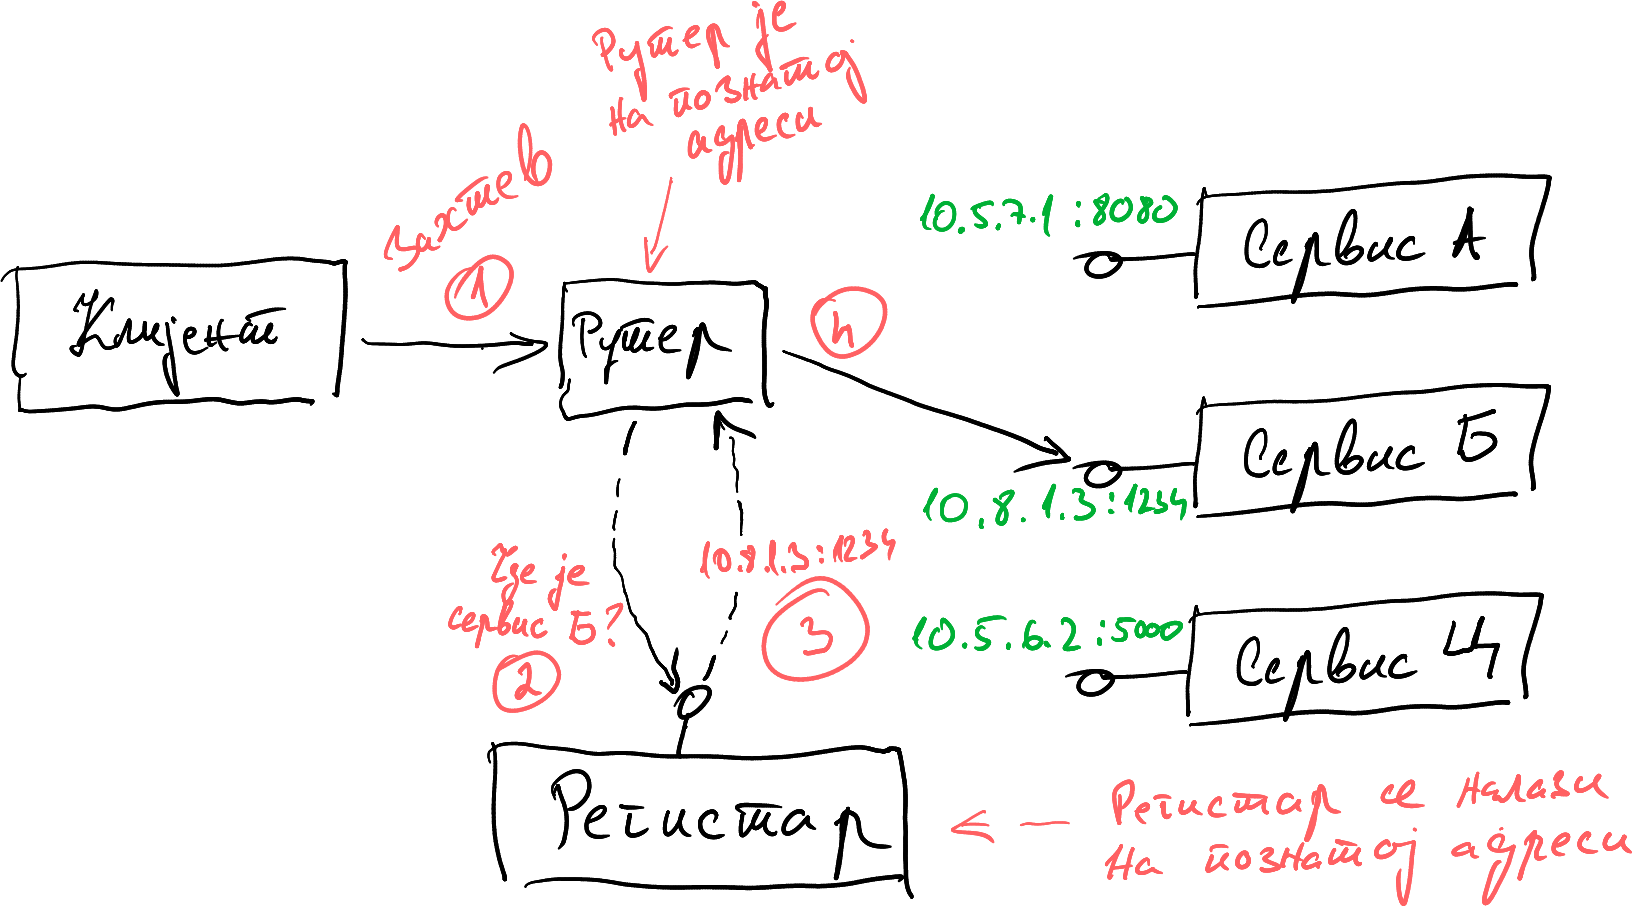 Рутер је
на познатој
адреси
Захтев
1
Клијент
Рутер
4
10.5.7.1:8080
Сервис А
Сервис Б
10.8.1.3:1234
Где је
сервис Б?
2
10.8.1.3:1234
3
10.5.6.2:5000
Сервис Ц
Регистар
Регистар се налази
на познатој адреси